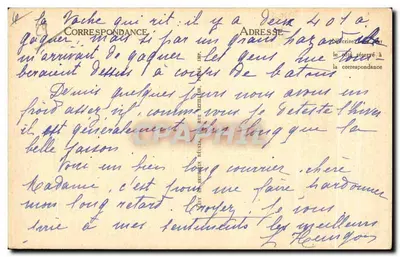 la Vache qui rit : il y a deux 401 à
gagner, mais si par un grand hazard
CORRESPONDANCE
ADRESSE
m'arrivait de gagner les gens me
beraient dessus à coups de batons
la correspondance
Depuis quelques jours nous avons un
froid assez vif, comme je déteste l'hiver
il est généralement plus long que la
belle saison.
Voici un bien long courrier, chère
Madame, c'est pour me faire pardonner
mon long retard. Croyez je vous
prie à mes sentiments les meilleurs